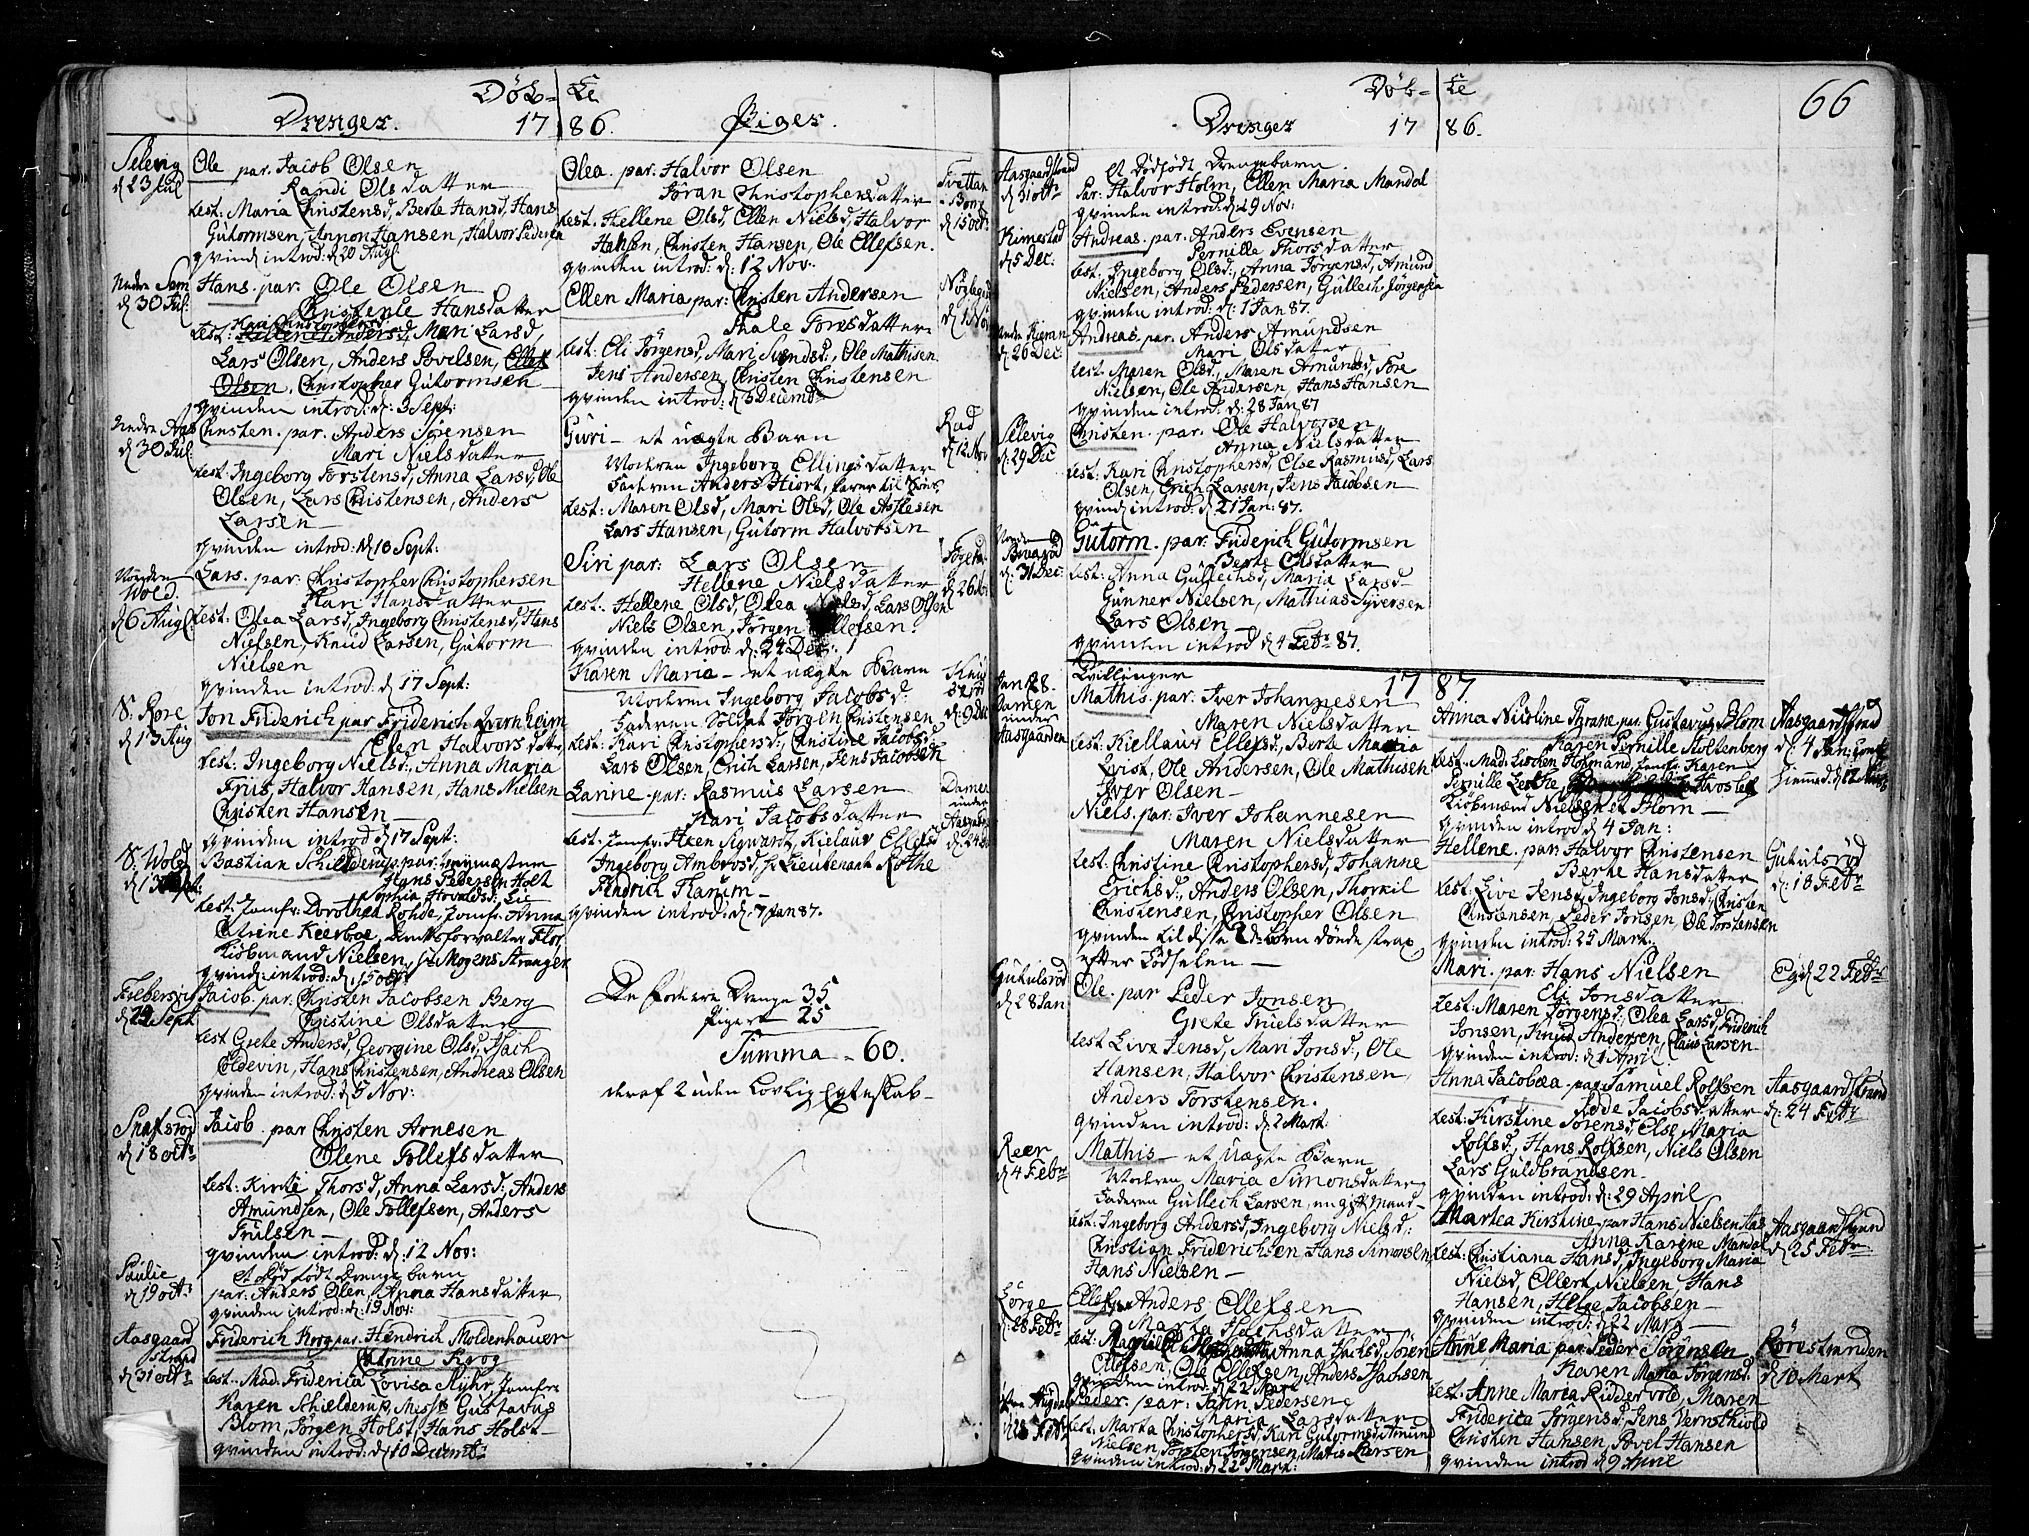 Døb-
Drenger. 17
Selevig
d 23 Jul
Ole par. Jacob Olsen
Randi Olsdatter
test: Maria Christensd, Berte Hansd, Hans
Gutormsen, Hansen, Halvor Pedersen
qvind introd: d 20 Aug:
Nedre Sem
d 30 Jul:
Hans. par: Ole Olsen
Hansdatter
test: Mari Larsd,
Lars Olsen, Anders Povelsen,
Olsen. Christopher Gutormsen
qvinden introd: d: 3 Sept:
Nedre
d 30 Jul:
Christen. par. Anders Sörensen
Mari Nielsdatter
test: Ingeborg Torstensd, Anna Larsd, Ole
Olsen, Lars Christensen, Anders
Larsen
qvinden introd: d 10 Sept:
Wold.
d 6 Aug:
Lars. par: Christopher Christophersen
Kari Hansdatter
test: Olea Larsd, Ingeborg Christensd, Hans
Nielsen, Knud Larsen, Gutorm
Nielsen
qvinden introd: d 17 Sept:
S: Röre
d 13 Aug
Jon Friderich par Friderich
Elen Halvorsdatter
test: Ingeborg Nielsd:, Anna Maria
Friis, Halvor Hansen, Hans Nielsen
Christen Hansen
qvinden introd: d 17 Sept:
S. Wold
d 13
Bastian par:
Hans Pedersen Holt
Sophia Lie
test: Jomfr: Dorothea Rohde, Jomfr: Anna
Catrine Keerboe, Flor,
Kiöbmand Nielsen, Mogens Stranger
qvind: introd: d 15 Oct:
d 29 Sept
Jacob. par. Christen Jacobsen Berg
Christine Olsdatter
test Grete Andersd, Georgine Olsd, Isach
Coldevin, Hans Christensen, Andreas Olsen
qvinden introd: d 5 Nov:
Snafsröd
d 18 Octr
Jacob. par Christen Arnesen
Olene Tollefsdatter
test: Kirsti Thorsd, Anna Larsd:, Anders
Amundsen, Ole Tollefsen, Anders
Trulsen
qvinden introd: d: 12 Nov:
Paulie
d 19 Oct:
et död födt Drenge barn
par: Anders Olsen, Anna Hansdatter
qvinden introd: d: 19 Nov:
Aasgaard
strand
d 31 Octr
Friderich Krog par. Hendrich Moldenhauer
Catrine Krog
test. Mad. Friderica Lovisa Jomfr:
Karen Schielderup, Gustavus
Blom, Jörgen Holst, Hans Holst
qvinden introd: d 10 Decembr
te
86. Piger.
Olea. par: Halvor Olsen
Jöran Christophersdatter
test: Hellene Olsd, Ellen Nielsd, Halvor
Hansen, Christen Hansen, Ole Ellefsen.
qvinden introd: d: 12 Nov:
d 15 Oct:
Ellen Maria par: Christen Andersen
Thale Toresdatter
test: Eli Jörgensd, Mari Svendsd:, Ole Mathisen
Jens Andersen, Christen Christensen
qvinden introd: d 3 Decembr
d 1 Nov
Guri - et uægte Barn
Moderen Ingeborg Ellingsdatter
Faderen Anders Hiort,
test: Maren Olsd, Mari Olsd, Ole Asslesen
Lars Hansen, Gutorm Halvorsen
Rad
d 12 Nov
Siri par: Lars Olsen
Hellene Nielsdatter
test: Hellene Olsd, Olea Nielsd, Lars Olsen
Niels Olsen, Jörgen Ellefsen.
qvinden introd: d: 24 Dec:
d 26
Karen Maria - et uægte Barn
Moderen Ingeborg Jacobsd:
Faderen Soldat Jörgen Christensen
test: Kari Christophersd:, Christine Jacobsd:
Lars Olsen, Erich Larsen, Jens Jacobsen
d: 9 Dec
Larine par: Rasmus Larsen
Kari Jacobsdatter
test: Jomfr: Aken Sigwardt, Kielaus Ellefs
Ingeborg Ambrosd, Lieutenant Rothe
Fendrich Thanum
qvinden introd: d: 7 Jan 87.
Damen
under
d: 24
De Födere Drenge 35
Piger 25
Summa - 60.
deraf 2 uden Lovlig Egteskab
66
Døb-
Drenger 17
te
86.
Aasgaardstrand
d 31 Octr
et Dødfødt Drengebarn.
Par: Halvor Holm, Ellen Maria Mandal
qvinden introd: d 29 Nov:
Kimestad
d 5 Dec:
Andreas. par: Anders Evensen
Pernille Thorsdatter
test. Ingeborg Olsd:, Anna Jörgensd, Amund
Nielsen, Anders Pedersen, Gullech Jörgensen
qvinden introd: d: 1 Jan 87.
d: 26 Dec:
Andreas. par: Anders Amundsen
Mari Olsdatter
test Maren Olsd, Maren Amundsd, Tore
Nielsen, Ole Andersen, Hans Hansen
qvinden introd: d: 28 Jan 87
Selevig
d: 29 Dec
Christen. par: Ole Halvorsen
Anna Nielsdatter
test: Kari Christophersd, Else Rasmusd, Lars
Olsen, Erich Larsen, Jens Jacobsen
qvind introd: d 21 Jan: 87.
d: 31 Dec:
Gutorm. par: Friderich Gutormsen
Berte Olsdatter
test: Anna Gullechsd, Maria Larsd
Gunner Nielsen, Mathias Syversen
Lars Olsen
qvinden introd d 4 Febr 87.
17 87.
Jan 28.
Damen
under
Aasgaarden
Tvillinger
Mathis par: Iver Johannesen
Maren Nielsdatter
test: Kiellaus Ellefsd:, Berte Maria
Qvist, Ole Andersen, Ole Mathisen
Iver Olsen
Niels. par: Iver Johannesen
Maren Nielsdatter
test: Christine Christophersd, Johanne
Erichsd:, Anders Olsen, Thorkil
Christensen, Christopher Olsen
qvinden til disse 2de börn döde strax
efter Födselen
Gutulsröd
d 28 Jan
Ole. par Peder Jonsen
Grete Truelsdatter
test Live Jensd, Mari Jonsd:, Ole
Hansen, Halvor Christensen,
Anders Torstensen.
qvinden introd: d 2 Mart.
Reer
d 4 Febr
Mathis et Uægte Barn
Moderen Maria Simonsdatter
Faderen Gullech Larsen, en gift Mand
test: Ingeborg Andersd, Ingeborg Nielsd:
Christian Friderichsen Hans Simonsen
Hans Nielsen
d 28 Febr
Ellef par Anders Ellefsen
Marta Isachsdatter
test: Anna Isachsd, Sören
Ellefsen, Ole Ellefsen, Anders Isachsen
qvinden introd: d 22 Mart
Peder. par: Pedersen
Maria Larsdatter
test. Marta Christophersd, Kari Gutormsd, Amund
Nielsen, Torsten Jörgensen, Mathis Iversen
qvinden introd: d 22 Mart:
Anna Nicoline Thrane par: Gustavus Blom
Karen Pernille Stoltenberg
test. Mad. Lischen Hofmand, Jomfr: Karen
Pernille
Kiöbmænd Nielsen et Horn
qvinden introd d 4 Jan:
Aasgaardstrand
d: 4 Jan:
Hellene. par: Halvor Christensen
Berte Hansdatter
test: Live Jensd, Ingeborg Jonsd, Christen
Christensen, Peder Jonsen, Ole Torstensen
qvinden introd: 25 Mart.
Gutulsröd
d: 18 Febr
Mari. par: Hans Nielsen
Eli Jonsdatter
test: Maren Jörgensd:, Olea Larsd, Friderich
Jonsen, Knud Andersen, Claus Larsen
qvinden introd: d 1 April
d 22 Febr
Anna Jacobæa par Samuel Rolfsen
Jacobsdatter
test: Kirstine Sörensd, Else Maria
Rolfsd:, Hans Rolfsen, Niels Olsen
Lars Guldbrandsen
qvinden introd: d: 29 April
Aasgaardstrand
d: 24 Febr
Martea Kirstine par Hans Nielsen Aas
Anna Karine Mandal
test: Christiana Hansd, Ingeborg Maria
Nielsd, Ellert Nielsen, Hans
Hansen, Helge Jacobsen
qvinden introd: d 22 Mart
Aasgaardstrand
d 25 Febr
Anne Maria par Peder Sörensen
Karen Maria Jörgensd.
test: Anne Marea Riddervold, Maren
Friderica Jörgensd, Jens Vernschiold
Christen Hansen, Povel Hansen
qvinden introd d 9 April
Rörestranden
d 10 Mart